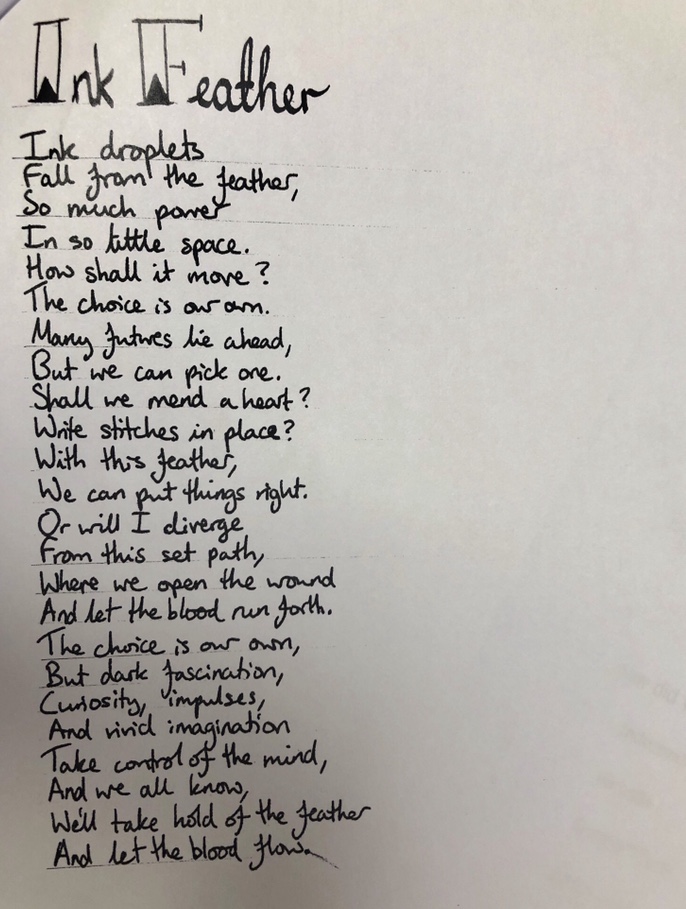 Ink Feather
Ink droplets
Fall from the feather,
So much power
In so little space.
How shall it move?
The choice is our own.
Many futures lie ahead,
But we can pick one.
Shall we mend a heart?
Write stitches in place?
With this feather,
We can put things right.
Or will I diverge
From this set path,
Where we open the wound
And let the blood run forth.
The choice is our own,
But dark fascination,
Curiosity, impulses,
And vivid imagination
Take control of the mind,
And we all know,
We'll take hold of the feather
And let the blood flow.